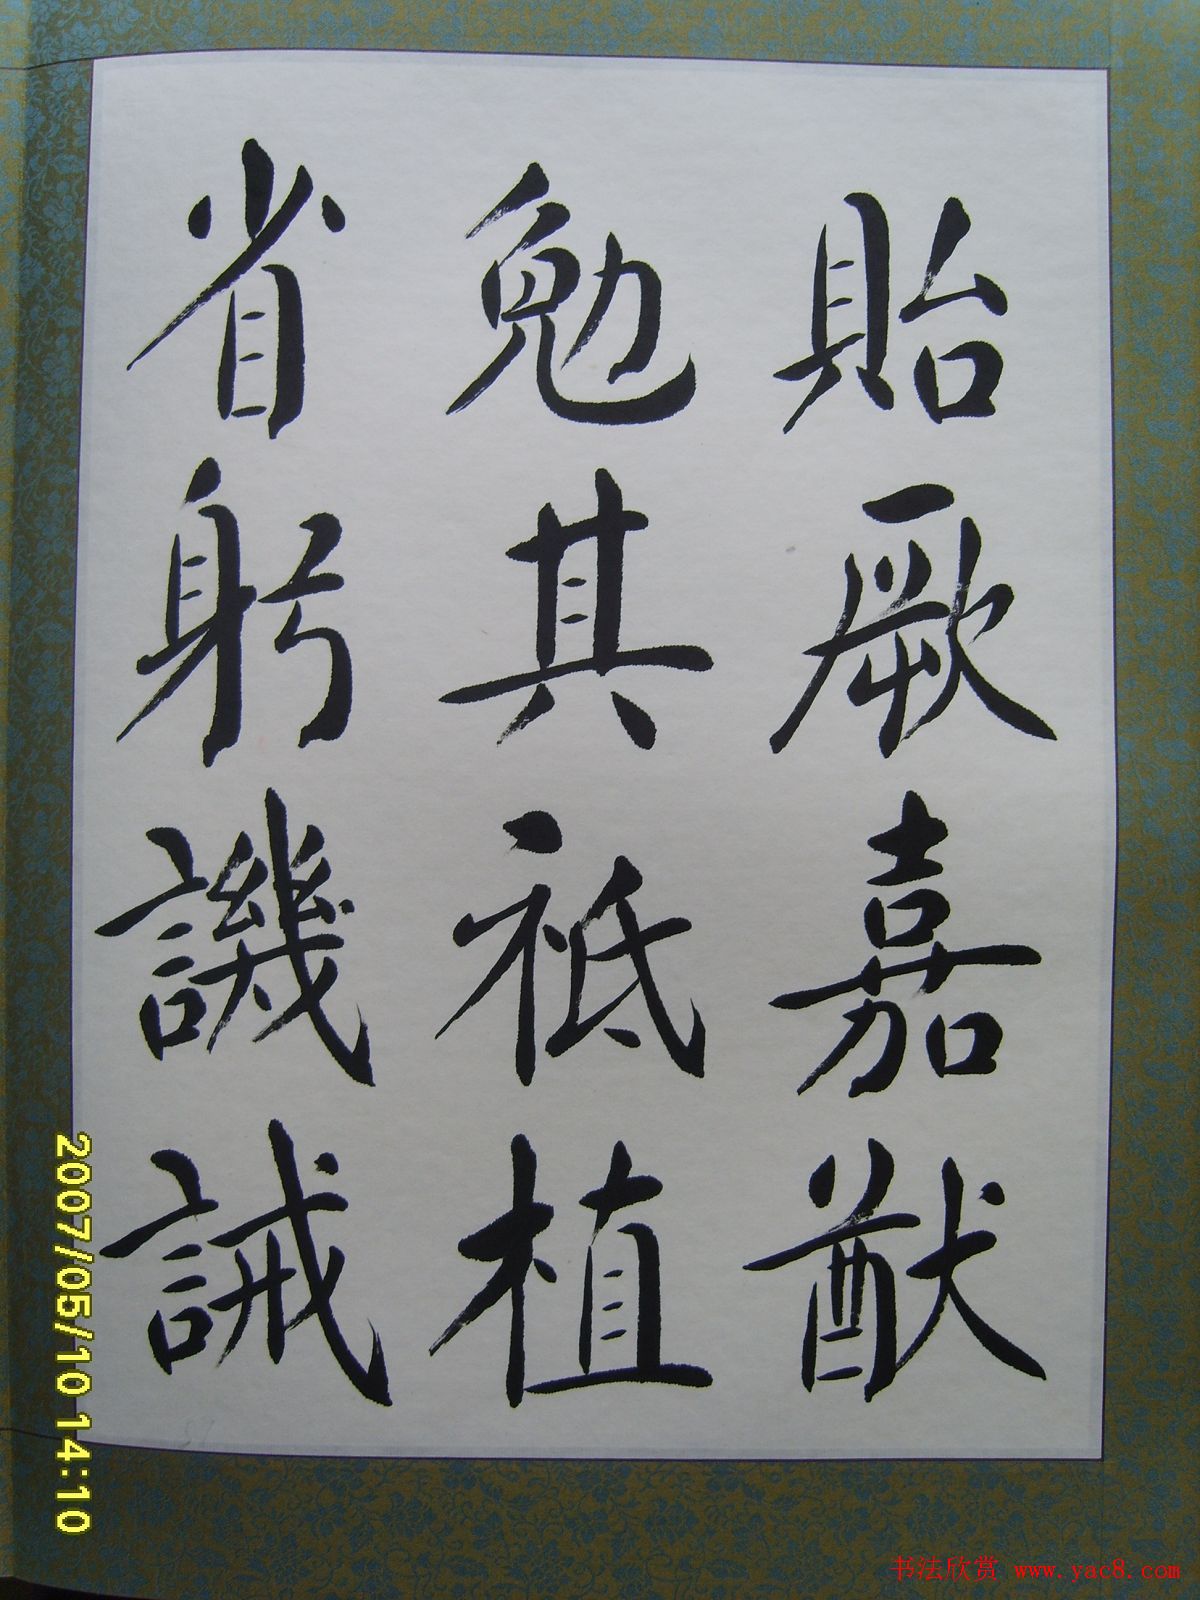 貽厥嘉猷
勉其祗植
省躬譏誡
2007/05/10 14:10
书法欣赏 www.yac8.com